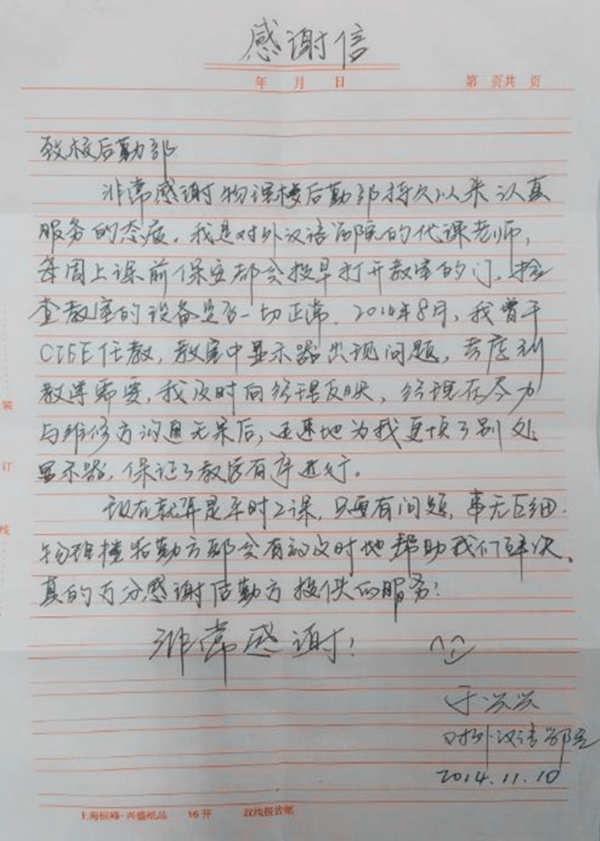 感谢信
年 月 日 第 页共 页
致校后勤部
非常感谢物理楼后勤部持久以来认真
服务的态度。我是对外汉语学院的代课老师，
每周上课前保安都会提早打开教室的门，检
查教室的设备是否一切正常。2014年8月，我曾于
CIEE任教，教室中显示器出现问题，考虑到
教学需要，我及时向经理反映，经理在尽力
与维修方沟通无果后，迅速地为我更换了别处
显示器，保证了教学有序进行。
现在就算是平时上课，只要有问题，事无巨细，
物理楼后勤方都会有效及时地帮助我们解决。
真的万分感谢后勤方提供的服务！
非常感谢！
于
对外汉语学院
2014.11.10
装
订
线
上海恒峰·兴盛纸品 16开 双线报告纸